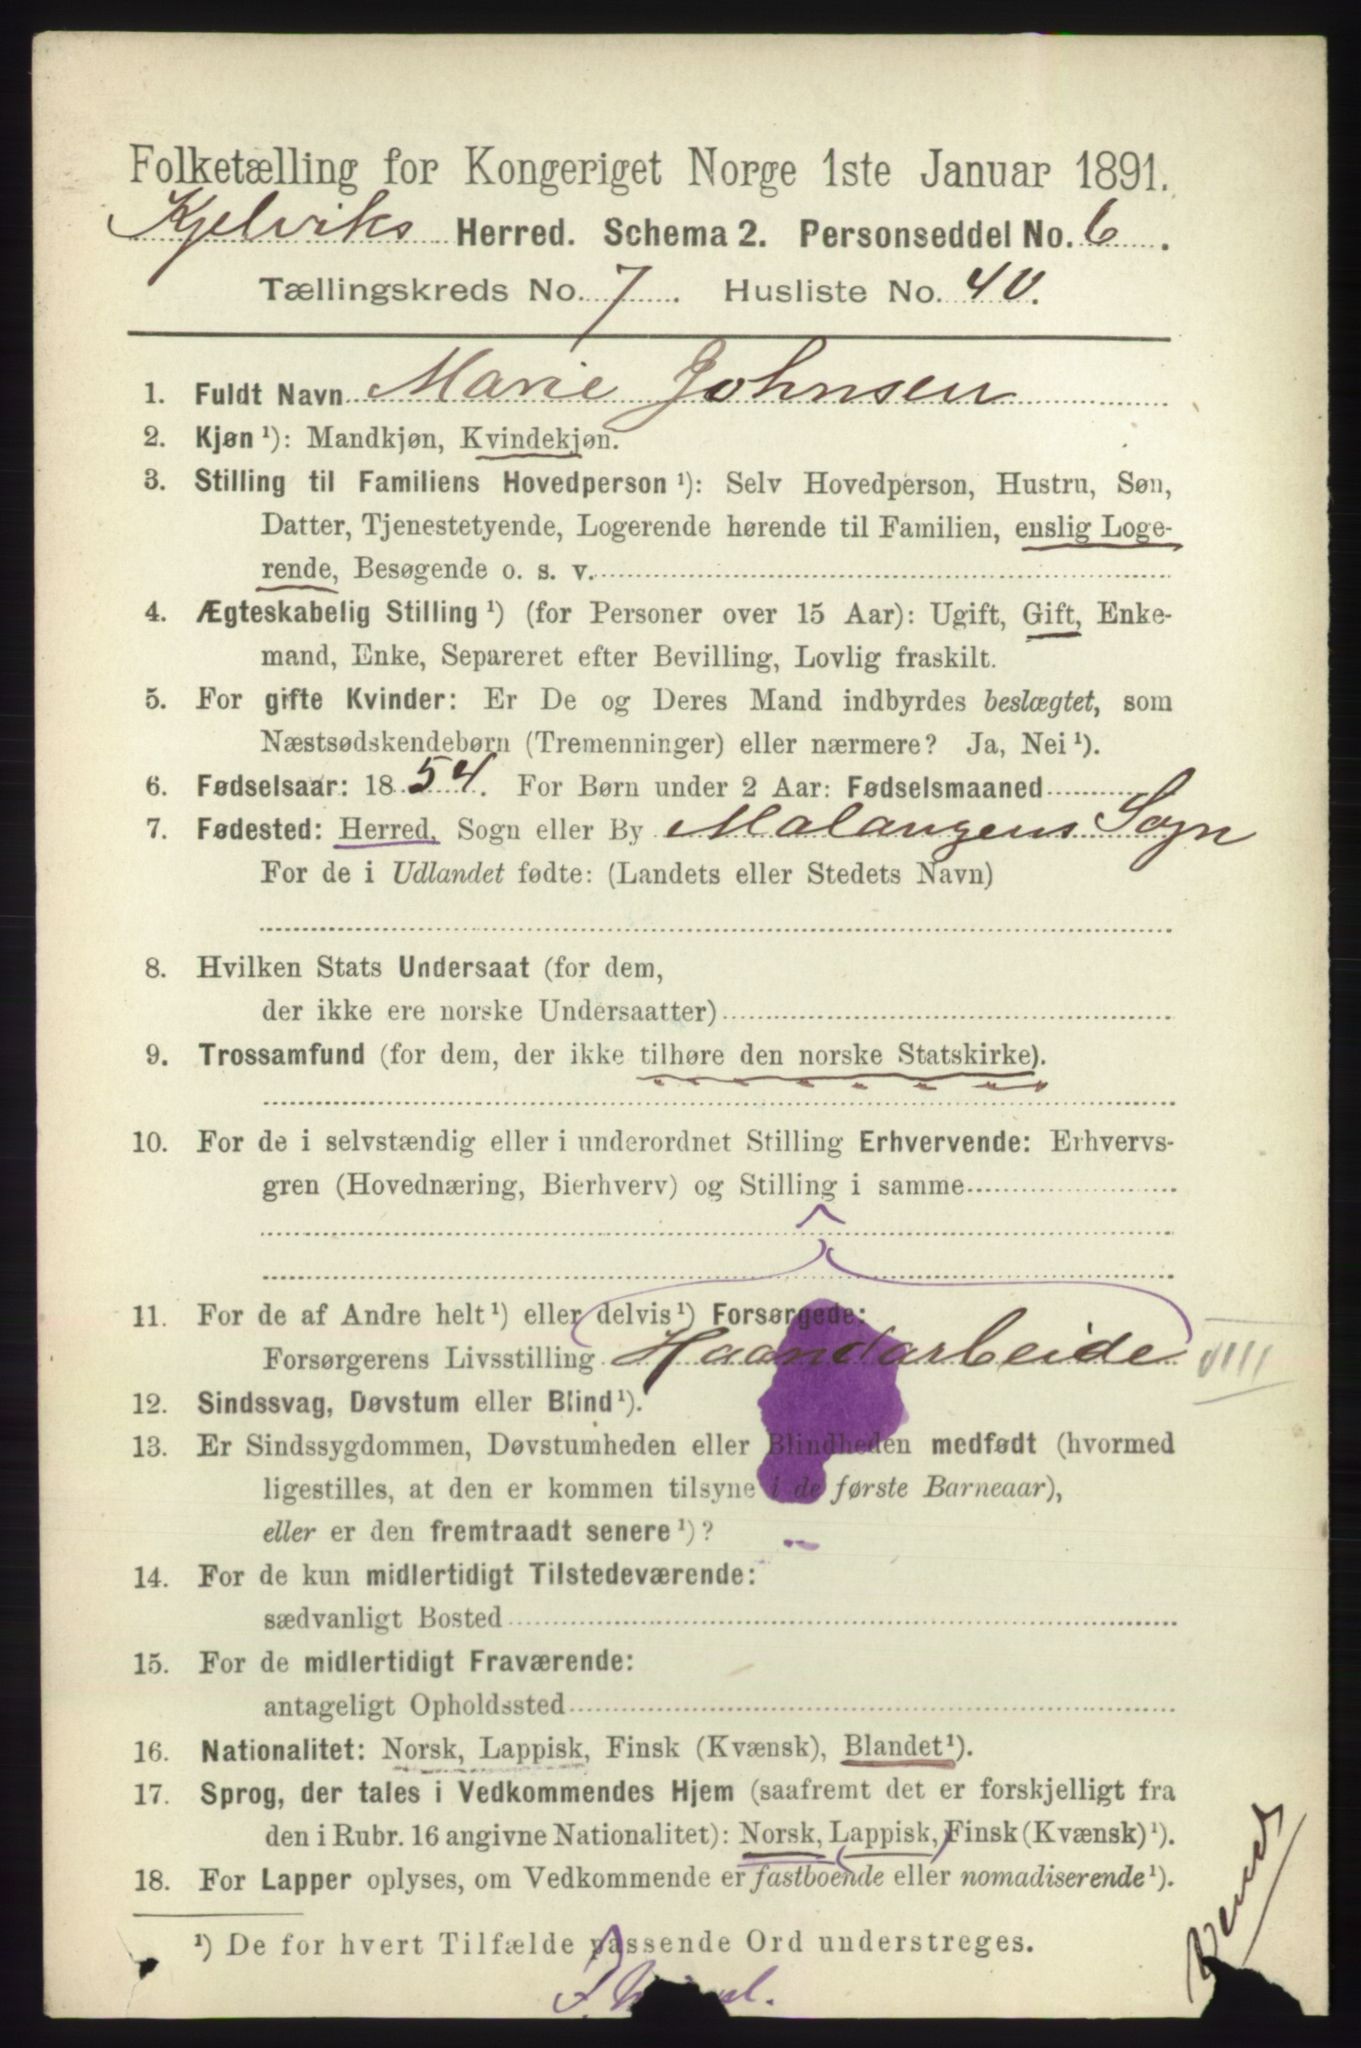 Folketælling for Kongeriget Norge 1ste Januar 1891.
Kjelviks Herred. Schema 2. Personseddel No. 6.
Tællingskreds No. 7. Husliste No. 40.
1. Fuldt Navn Marie Johnsen
2. Kjøn ¹): Mandkjøn, Kvindekjøn.
3. Stilling til Familiens Hovedperson ¹): Selv Hovedperson, Hustru, Søn,
Datter, Tjenestetyende, Logerende hørende til Familien, enslig Loge-
rende, Besøgende o. s. v.
4. Ægteskabelig Stilling ¹) (for Personer over 15 Aar): Ugift, Gift, Enke-
mand, Enke, Separeret efter Bevilling, Lovlig fraskilt.
5. For gifte Kvinder: Er De og Deres Mand indbyrdes beslægtet, som
Næstsødskendebørn (Tremenninger) eller nærmere? Ja, Nei ¹).
6. Fødselsaar: 1854. For Børn under 2 Aar: Fødselsmaaned
7. Fødested: Herred, Sogn eller By Malangens Sogn
For de i Udlandet fødte: (Landets eller Stedets Navn)
8. Hvilken Stats Undersaat (for dem,
der ikke ere norske Undersaatter)
9. Trossamfund (for dem, der ikke tilhøre den norske Statskirke).
10. For de i selvstændig eller i underordnet Stilling Erhvervende: Erhvervs-
gren (Hovednæring, Bierhverv) og Stilling i samme
11. For de af Andre helt ¹) eller delvis ¹) Forsørgede:
Forsørgerens Livsstilling Haandarbeide VIII
12. Sindssvag, Døvstum eller Blind ¹).
13. Er Sindssygdommen, Døvstumheden eller Blindheden medfødt (hvormed
ligestilles, at den er kommen tilsyne i de første Barneaar),
eller er den fremtraadt senere ¹)?
14. For de kun midlertidigt Tilstedeværende:
sædvanligt Bosted
15. For de midlertidigt Fraværende:
antageligt Opholdssted
16. Nationalitet: Norsk, Lappisk, Finsk (Kvænsk), Blandet ¹).
17. Sprog, der tales i Vedkommendes Hjem (saafremt det er forskjelligt fra
den i Rubr. 16 angivne Nationalitet): Norsk, Lappisk, Finsk (Kvænsk) ¹).
18. For Lapper oplyses, om Vedkommende er fastboende eller nomadiserende ¹).
¹) De for hvert Tilfælde passende Ord understreges.